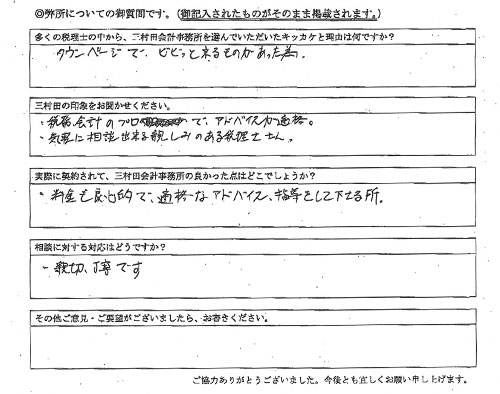 ◎弊所についての御質問です。（御記入されたものがそのまま掲載されます。）
多くの税理士の中から、三村田会計事務所を選んでいただいたキッカケと理由は何ですか？
タウンページで、ビビッと来るものがあった為。
三村田の印象をお聞かせください。
・税務、会計のプロで、アドバイスが適格。
・気軽に相談出来る親しみのある税理士さん。
実際に契約されて、三村田会計事務所の良かった点はどこでしょうか？
・料金も良心的で、適格なアドバイス、指導をして下さる所。
相談に対する対応はどうですか？
・親切、丁寧です
その他ご意見・ご要望がございましたら、お書きください。
ご協力ありがとうございました。今後とも宜しくお願い申し上げます。